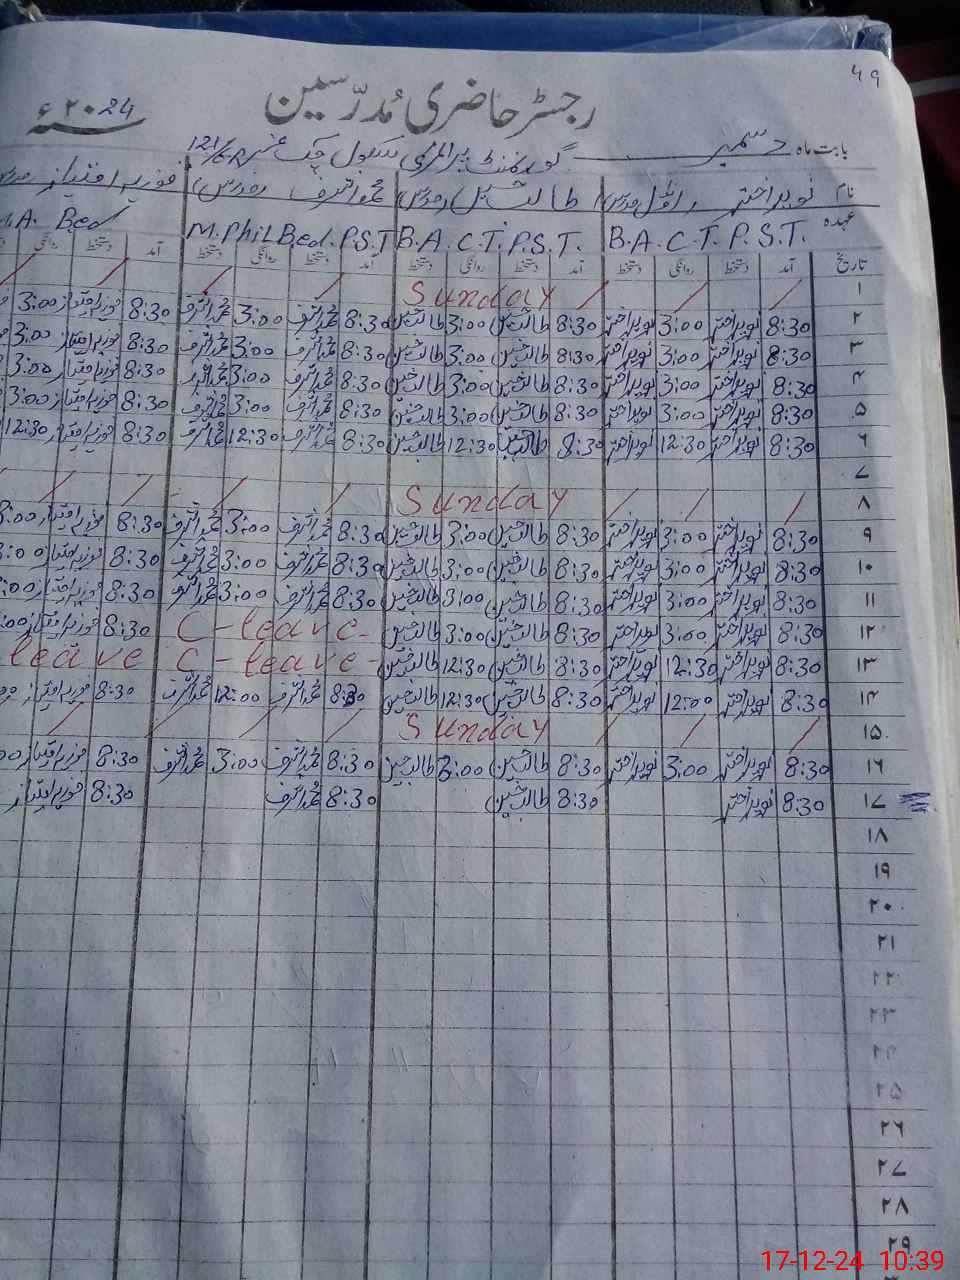 ۴۹
رجسٹر حاضری مُدرّسین
سنہ ۲۰24ء
بابت ماہ دسمبر گورنمنٹ پرائمری سکول چک نمبر 121/6R
نام نوید اختر طالب حسین (مدرس) محمد اشرف (مدرس) فوزیہ امتیاز
عہدہ B.A. C.T. P.S.T. B.A. C.T. P.S.T. M.Phil Bed. P.S.T .A. Bed
تاریخ آمد دستخط روانگی دستخط آمد دستخط روانگی دستخط آمد دستخط روانگی دستخط آمد دستخط روانگی
۱ Sunday
۲ 8:30 نوید اختر 3:00 نوید اختر 8:30 طالب حسین 3:00 طالب حسین 8:30 محمد اشرف 3:00 محمد اشرف 8:30 فوزیہ امتیاز 3:00
۳ 8:30 نوید اختر 3:00 نوید اختر 8:30 طالب حسین 3:00 طالب حسین 8:30 محمد اشرف 3:00 محمد اشرف 8:30 فوزیہ امتیاز 3:00
۴ 8:30 نوید اختر 3:00 نوید اختر 8:30 طالب حسین 3:00 طالب حسین 8:30 محمد اشرف 3:00 محمد اشرف 8:30 فوزیہ امتیاز 3:00
۵ 8:30 نوید اختر 3:00 نوید اختر 8:30 طالب حسین 3:00 طالب حسین 8:30 محمد اشرف 3:00 محمد اشرف 8:30 فوزیہ امتیاز 3:00
۶ 8:30 نوید اختر 12:30 نوید اختر 8:30 طالب حسین 12:30 طالب حسین 8:30 محمد اشرف 12:30 محمد اشرف 8:30 فوزیہ امتیاز 12:30
۷
۸ Sunday
۹ 8:30 نوید اختر 3:00 نوید اختر 8:30 طالب حسین 3:00 طالب حسین 8:30 محمد اشرف 3:00 محمد اشرف 8:30 فوزیہ امتیاز 3:00
۱۰ 8:30 نوید اختر 3:00 نوید اختر 8:30 طالب حسین 3:00 طالب حسین 8:30 محمد اشرف 3:00 محمد اشرف 8:30 فوزیہ امتیاز :00
۱۱ 8:30 نوید اختر 3:00 نوید اختر 8:30 طالب حسین 3:00 طالب حسین 8:30 محمد اشرف 3:00 محمد اشرف 8:30 فوزیہ امتیاز :00
۱۲ 8:30 نوید اختر 3:00 نوید اختر 8:30 طالب حسین 3:00 طالب حسین C-leave- 8:30 فوزیہ امتیاز :00
۱۳ 8:30 نوید اختر 12:30 نوید اختر 8:30 طالب حسین 12:30 طالب حسین C-leave- leave
۱۴ 8:30 نوید اختر 12:00 نوید اختر 8:30 طالب حسین 12:30 طالب حسین 8:30 محمد اشرف 12:00 محمد اشرف 8:30 فوزیہ امتیاز :00
۱۵ Sunday
۱۶ 8:30 نوید اختر 3:00 نوید اختر 8:30 طالب حسین 3:00 طالب حسین 8:30 محمد اشرف 3:00 محمد اشرف 8:30 فوزیہ امتیاز 00
۱۷ 8:30 نوید اختر 8:30 طالب حسین 8:30 محمد اشرف 8:30 فوزیہ امتیاز
۱۸
۱۹
۲۰
۲۱
۲۲
۲۳
۲۴
۲۵
۲۶
۲۷
۲۸
۲۹
17-12-24 10:39